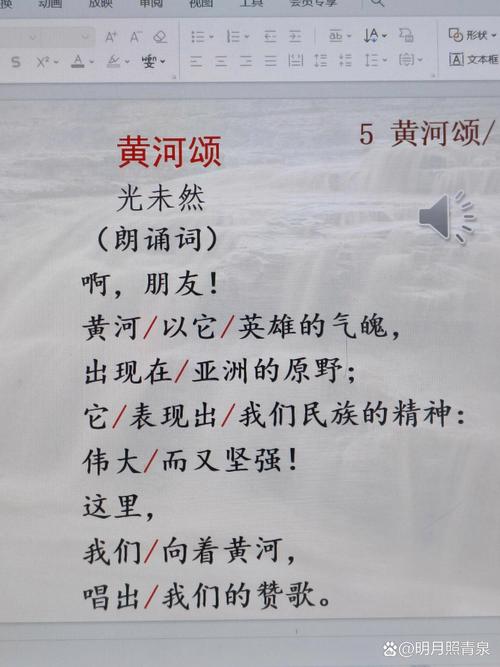 换 动画 放映 审阅 视图 工具 会员专享
A⁺ A⁻
S X² A 形状
文本框
黄河颂
5 黄河颂/
光未然
（朗诵词）
啊，朋友！
黄河/以它/英雄的气魄，
出现在/亚洲的原野；
它/表现出/我们民族的精神：
伟大/而又坚强！
这里，
我们/向着黄河，
唱出/我们的赞歌。
明月照青泉